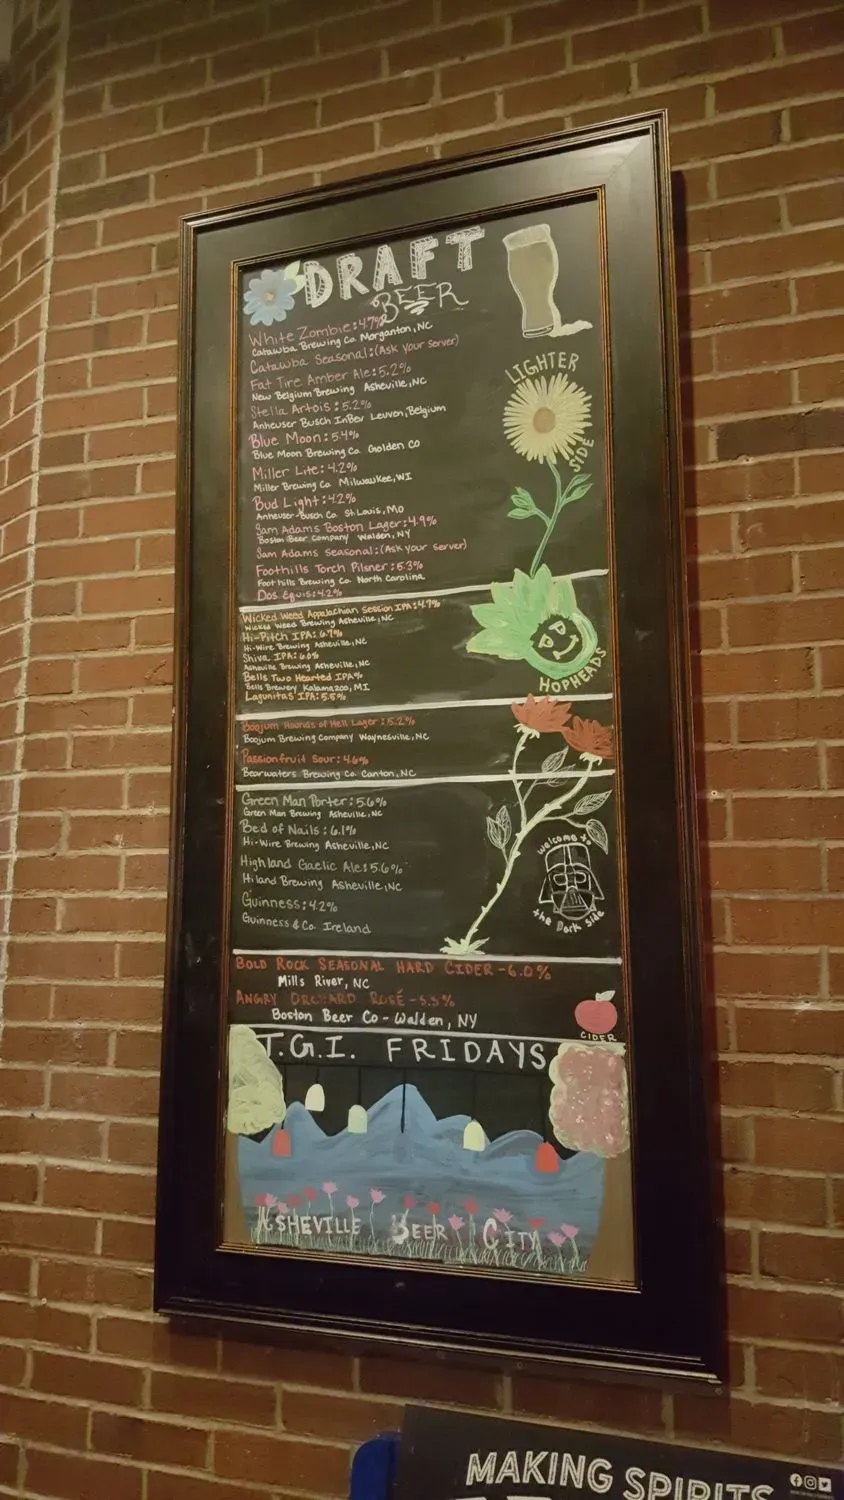 DRAFT
BEER
White Zombie: 4.7%
Catawba Brewing Co. Morganton, NC
Catawba Seasonal: (Ask your server)
Fat Tire Amber Ale: 5.2%
New Belgium Brewing Asheville, NC
Stella Artois: 5.2%
Anheuser Busch InBev Leuven, Belgium
Blue Moon: 5.4%
Blue Moon Brewing Co. Golden CO
Miller Lite: 4.2%
Miller Brewing Co. Milwaukee, WI
Bud Light: 4.2%
Anheuser-Busch Co. St. Louis, MO
Sam Adams Boston Lager: 4.9%
Boston Beer Company Walden, NY
Sam Adams Seasonal: (Ask your server)
Foothills Torch Pilsner: 5.3%
Foothills Brewing Co. North Carolina
Dos Equis: 4.2%
LIGHTER
SIDE
Wicked Weed Appalachian Session IPA: 4.7%
Wicked Weed Brewing Asheville, NC
Hi-Pitch IPA: 6.7%
Hi-Wire Brewing Asheville, NC
Shiva IPA: 6.0%
Asheville Brewing Asheville, NC
Bells Two Hearted IPA%
Bells Brewery Kalamazoo, MI
Lagunitas IPA: 5.5%
HOPHEADS
Boojum Hounds of Hell Lager: 5.2%
Boojum Brewing Company Waynesville, NC
Passionfruit Sour: 4.6%
Bearwaters Brewing Co. Canton, NC
Green Man Porter: 5.6%
Green Man Brewing Asheville, NC
Bed of Nails: 6.1%
Hi-Wire Brewing Asheville, NC
Highland Gaelic Ale: 5.6%
Hiland Brewing Asheville, NC
Guinness: 4.2%
Guinness & Co. Ireland
welcome to
the Dark Side
BOLD ROCK SEASONAL HARD CIDER - 6.0%
Mills River, NC
ANGRY ORCHARD ROSÉ - 5.5%
Boston Beer Co - Walden, NY
CIDER
T.G.I. FRIDAYS
ASHEVILLE BEER CITY
MAKING SPIRITS